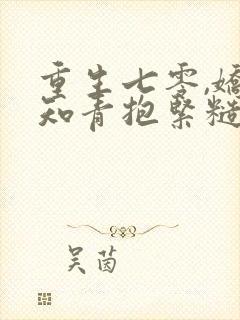 重生七零,嬌
知青抱緊糙
吴茵